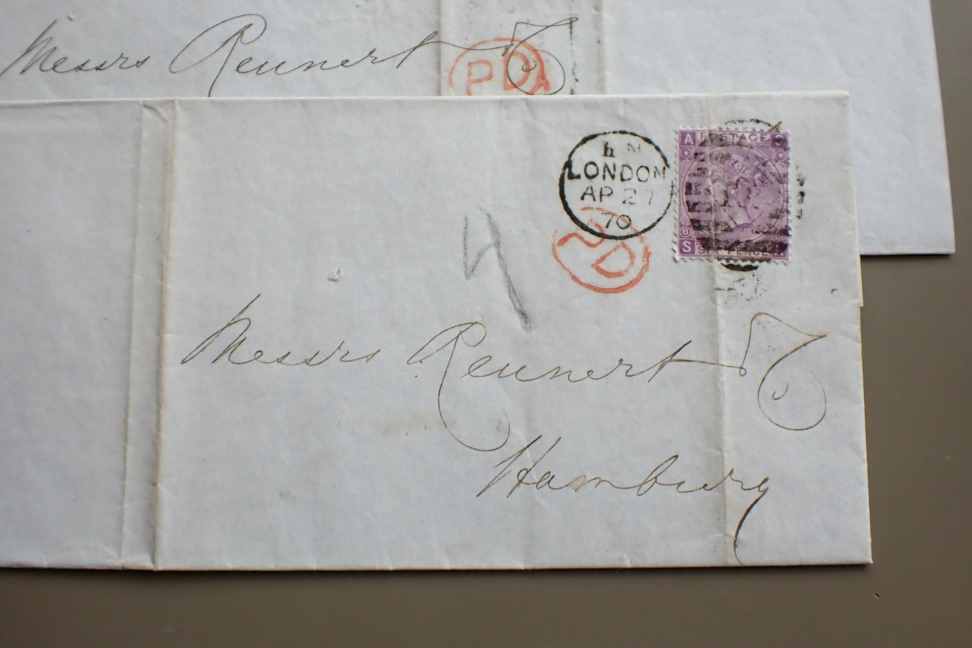 Messrs Reunert &
PD
h N
LONDON
AP 27
70
A POSTAGE
S SIX PENCE
PD
4
Messrs Reunert & Co
Hamburg